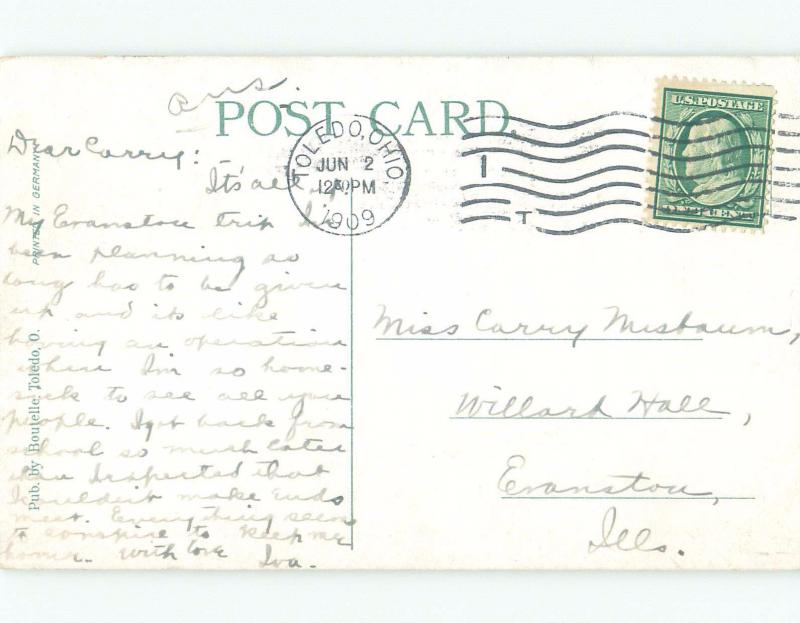 ans.
POST CARD.
TOLEDO, OHIO.
JUN 2
12 30 PM
1909
1
T
U.S. POSTAGE
Dear Carry:
It's all
My Evanston trip I've
been planning so
long has to be given
up and its like
having an operation
when I'm so home-
sick to see all you
people. I got back from
school so much later
than I expected that
I couldn't make ends
meet. Everything seems
to conspire to keep me
home. With love Iva.
Miss Carry Nusbaum,
Willard Hall,
Evanston,
Ills.
PRINTED IN GERMANY
Pub. by Boutelle, Toledo, O.